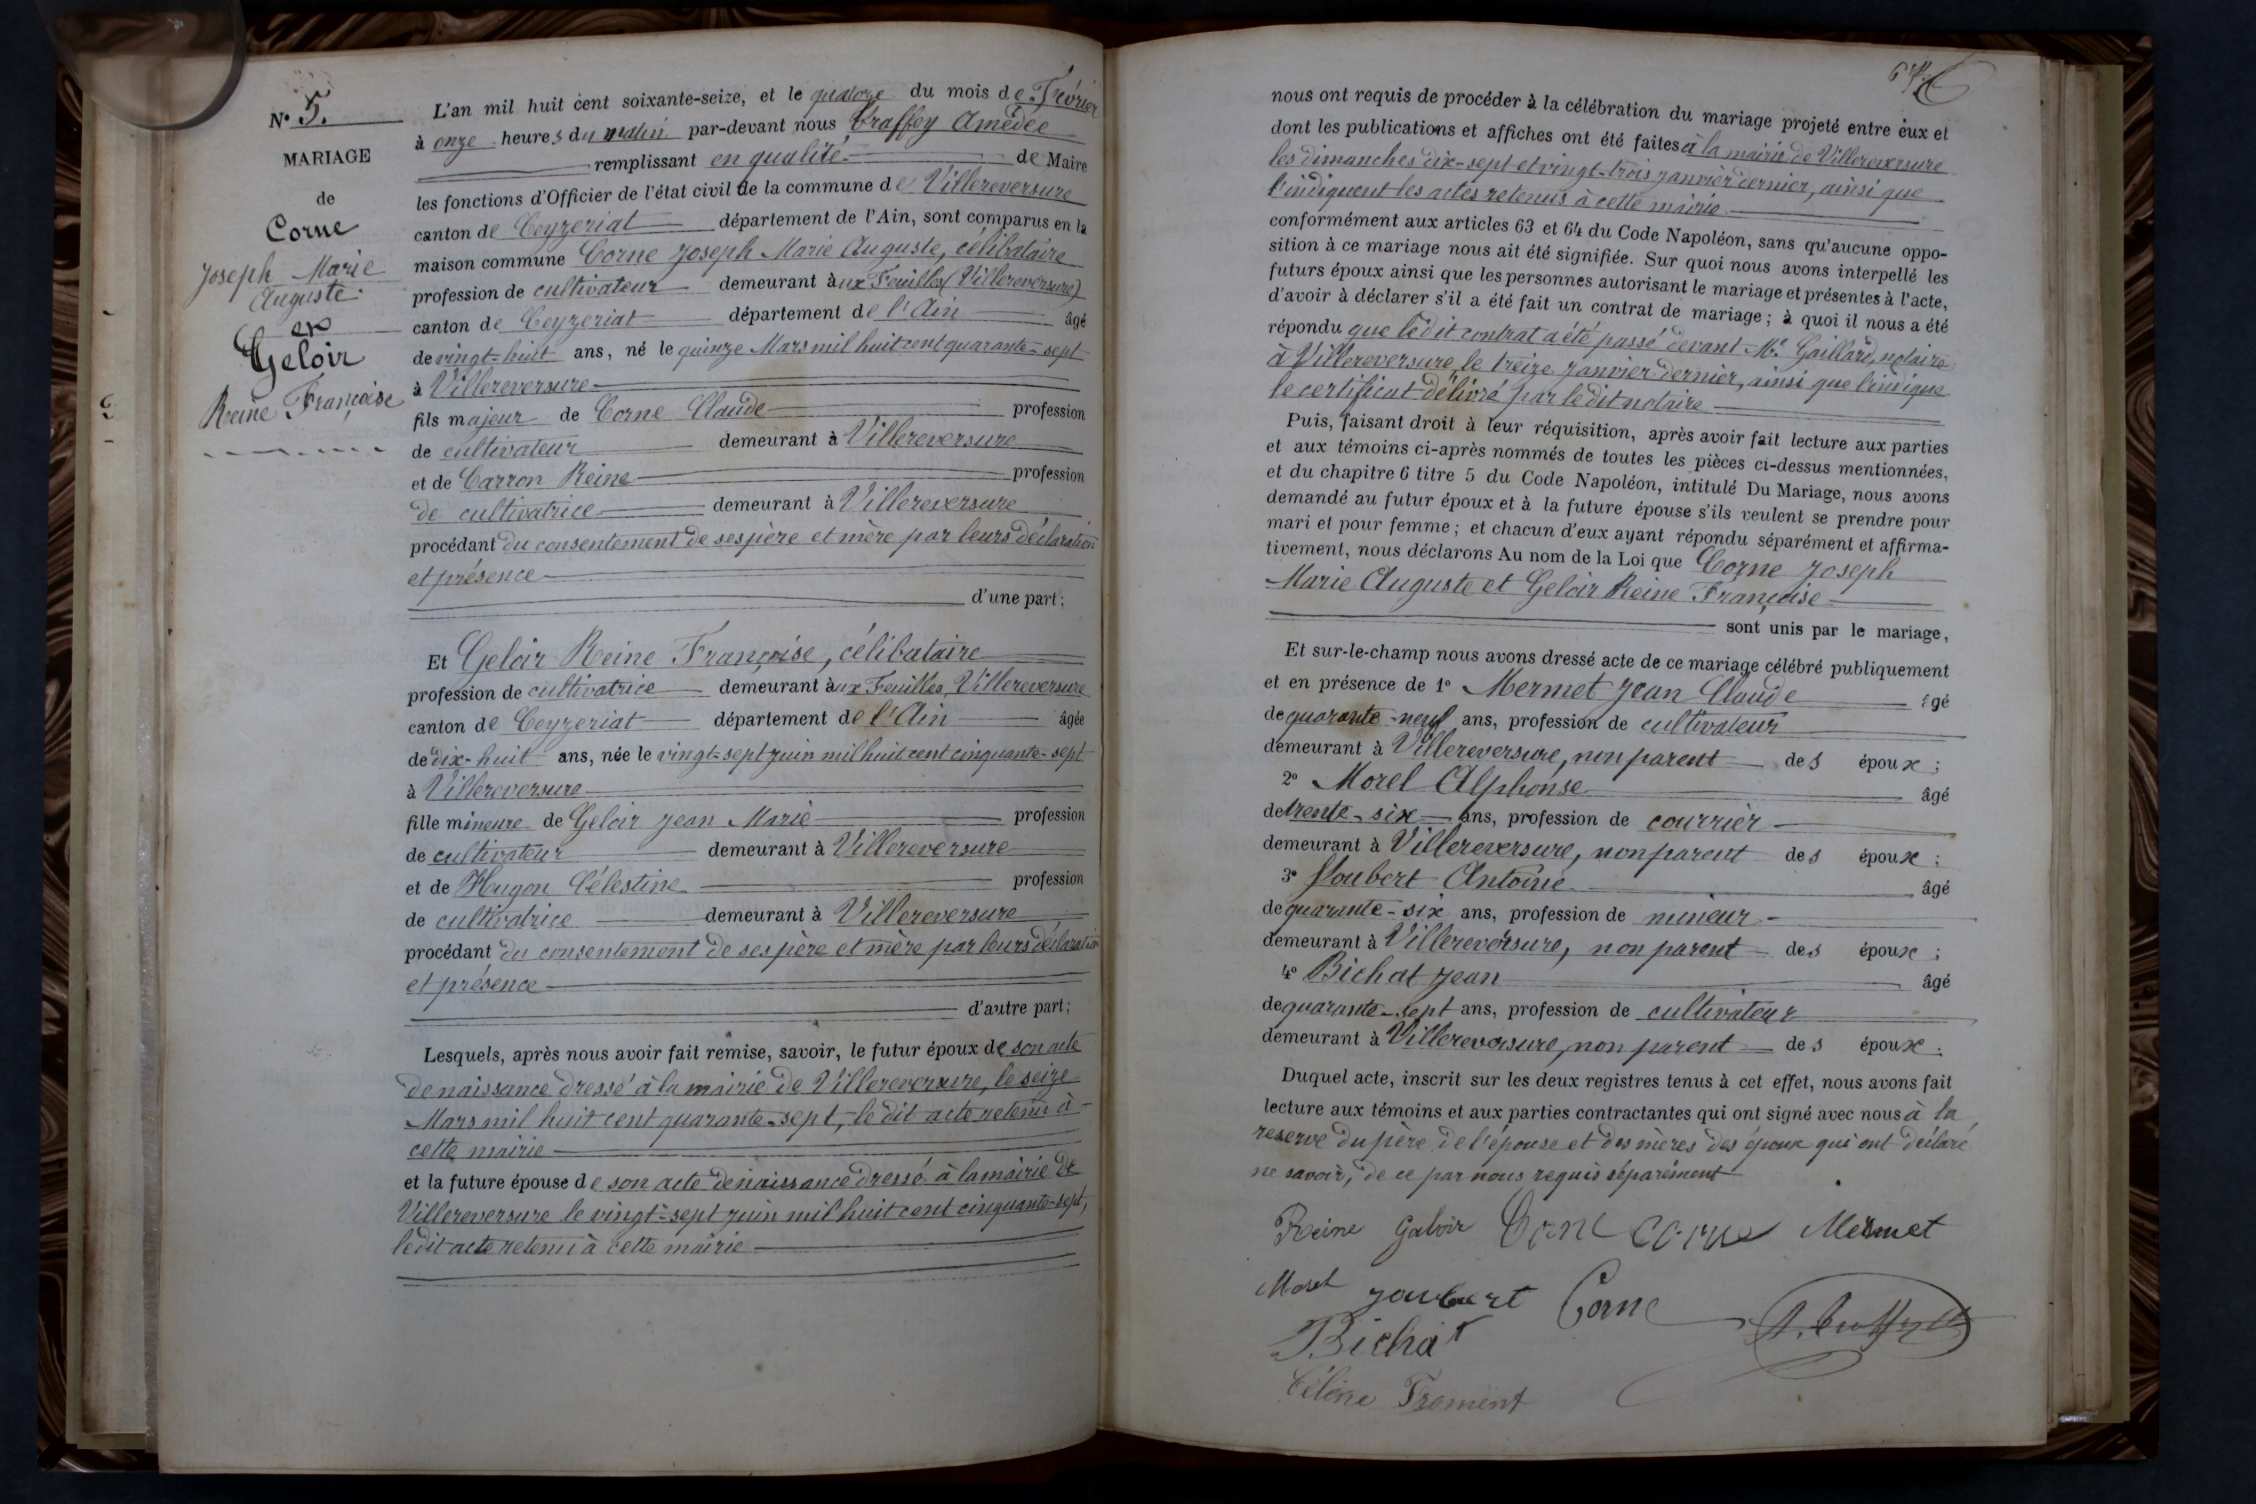 N° 5.
MARIAGE
de
Corne
Joseph Marie
Auguste
et
Geloir
Reine Françoise
L'an mil huit cent soixante-seize, et le quatorze du mois de Février
à onze heures du matin par-devant nous Amédée
remplissant en qualité de Maire
les fonctions d'Officier de l'état civil de la commune de Villereversure
canton de Ceyzeriat département de l'Ain, sont comparus en la
maison commune Corne Joseph Marie Auguste, célibataire
profession de cultivateur demeurant aux Feuilles (Villereversure)
canton de Ceyzeriat département de l'Ain âgé
de vingt-huit ans, né le quinze Mars mil huit cent quarante-sept
à Villereversure
fils majeur de Corne Claude profession
de cultivateur demeurant à Villereversure
et de Carron Reine profession
de cultivatrice demeurant à Villereversure
procédant du consentement de ses père et mère par leurs déclaration
et présence
d'une part;
Et Geloir Reine Françoise, célibataire
profession de cultivatrice demeurant aux Feuilles, Villereversure
canton de Ceyzeriat département de l'Ain âgée
de dix-huit ans, née le vingt-sept juin mil huit cent cinquante-sept
à Villereversure
fille mineure de Geloir Jean Marie profession
de cultivateur demeurant à Villereversure
et de Hugon Célestine profession
de cultivatrice demeurant à Villereversure
procédant du consentement de ses père et mère par leurs déclaration
et présence
d'autre part;
Lesquels, après nous avoir fait remise, savoir, le futur époux de son acte
de naissance dressé à la mairie de Villereversure, le seize
Mars mil huit cent quarante-sept, le dit acte retenu à
cette mairie
et la future épouse de son acte de naissance dressé à la mairie de
Villereversure le vingt-sept juin mil huit cent cinquante-sept,
le dit acte retenu à cette mairie
nous ont requis de procéder à la célébration du mariage projeté entre eux et
dont les publications et affiches ont été faites à la mairie de Villereversure
les dimanches dix-sept et vingt-trois janvier dernier, ainsi que
l'indiquent les actes retenus à cette mairie
conformément aux articles 63 et 64 du Code Napoléon, sans qu'aucune oppo-
sition à ce mariage nous ait été signifiée. Sur quoi nous avons interpellé les
futurs époux ainsi que les personnes autorisant le mariage et présentes à l'acte,
d'avoir à déclarer s'il a été fait un contrat de mariage; à quoi il nous a été
répondu que le dit contrat a été passé devant Me Gaillard, notaire
à Villereversure le treize janvier dernier, ainsi que l'indique
le certificat délivré par le dit notaire
Puis, faisant droit à leur réquisition, après avoir fait lecture aux parties
et aux témoins ci-après nommés de toutes les pièces ci-dessus mentionnées,
et du chapitre 6 titre 5 du Code Napoléon, intitulé Du Mariage, nous avons
demandé au futur époux et à la future épouse s'ils veulent se prendre pour
mari et pour femme; et chacun d'eux ayant répondu séparément et affirma-
tivement, nous déclarons Au nom de la Loi que Corne Joseph
Marie Auguste et Geloir Reine Françoise
sont unis par le mariage,
Et sur-le-champ nous avons dressé acte de ce mariage célébré publiquement
et en présence de 1° Mermet Jean Claude âgé
de quarante-neuf ans, profession de cultivateur
demeurant à Villereversure, non parent des époux;
2° Morel Alphonse âgé
de trente-six ans, profession de courrier
demeurant à Villereversure, non parent des époux;
3° Joubert Antoine âgé
de quarante-six ans, profession de mineur
demeurant à Villereversure, non parent des époux;
4° Bichat Jean âgé
de quarante-sept ans, profession de cultivateur
demeurant à Villereversure, non parent des époux.
Duquel acte, inscrit sur les deux registres tenus à cet effet, nous avons fait
lecture aux témoins et aux parties contractantes qui ont signé avec nous à la
reserve du père de l'épouse et des mères des époux qui ont déclaré
ne savoir, de ce par nous requis séparément
Reine Galoir Corne Corne Mermet
Morel Joubert Corne
Bichat
Froment